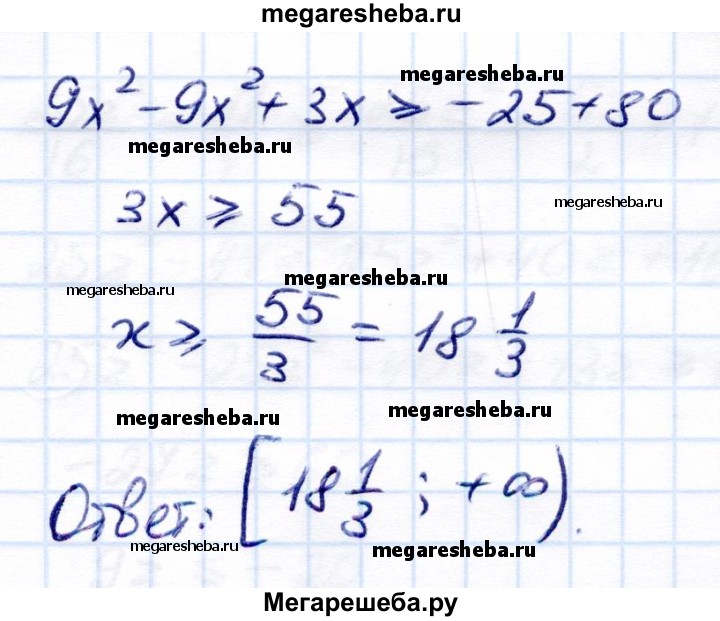 megaresheba.ru
megaresheba.ru
9x² - 9x² + 3x ⩾ -25 + 80
megaresheba.ru
3x ⩾ 55
megaresheba.ru
megaresheba.ru
megaresheba.ru
x ⩾ 55/3 = 18 1/3
megaresheba.ru
megaresheba.ru
Ответ: [18 1/3 ; +∞).
megaresheba.ru
megaresheba.ru
Мегарешеба.ру